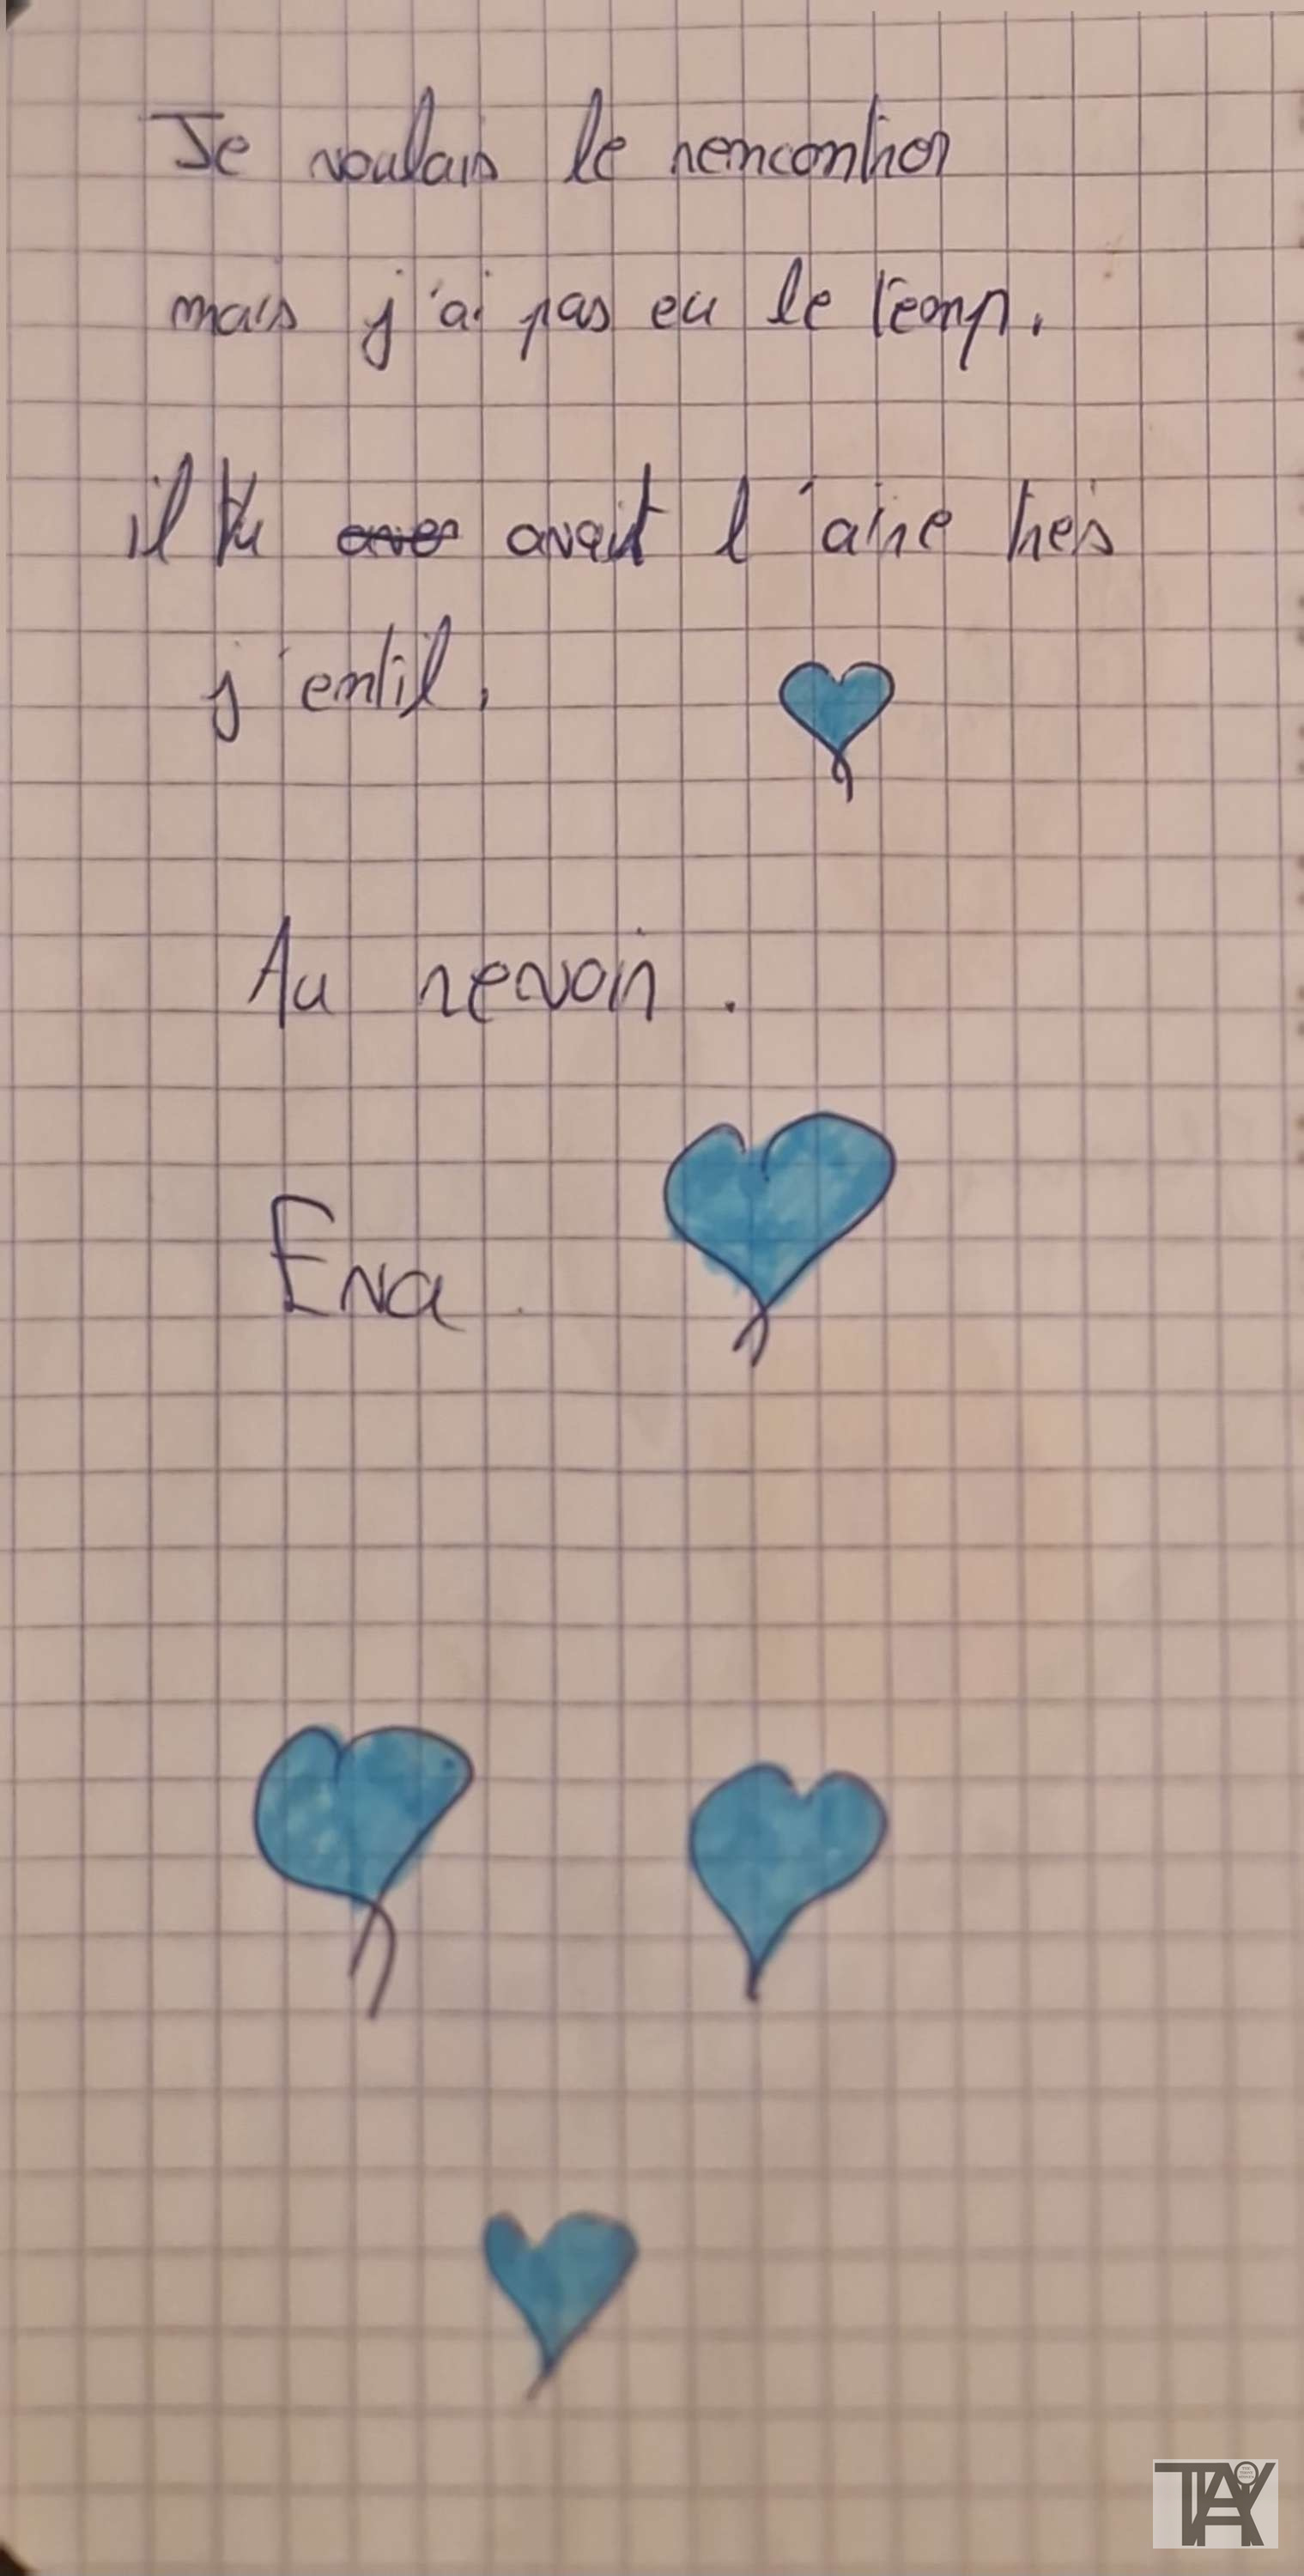 Je voulais le rencontrer
mais j'ai pas eu le temp.
il tu aver avait l'aire très
j'entil,
Au revoir.
Eva
TAY